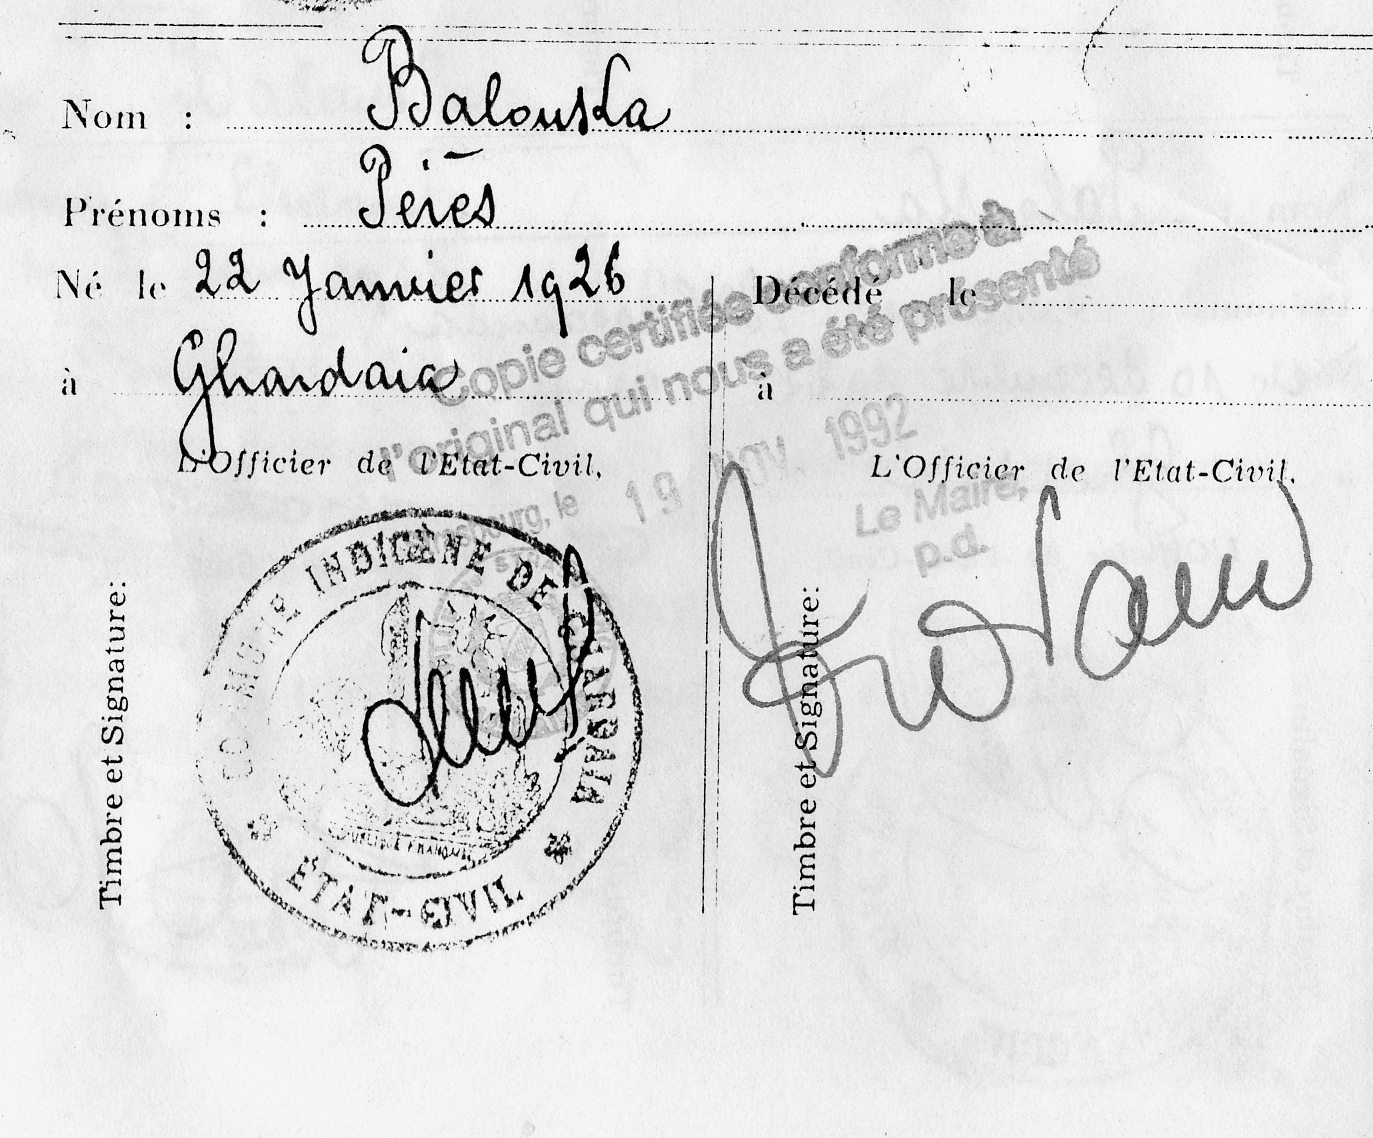 Nom : Balouka
Prénoms : Pérès
Né le 22 Janvier 1926
Décédé le
à Ghardaia
à
Copie certifiée conforme à
l'original qui nous a été présenté
le 19 NOV. 1992
Le Maire,
p.d.
L'Officier de l'Etat-Civil,
L'Officier de l'Etat-Civil,
Timbre et Signature:
Timbre et Signature:
COMMUNE INDIGÈNE DE GHARDAIA
RÉPUBLIQUE FRANÇAISE
ÉTAT-CIVIL